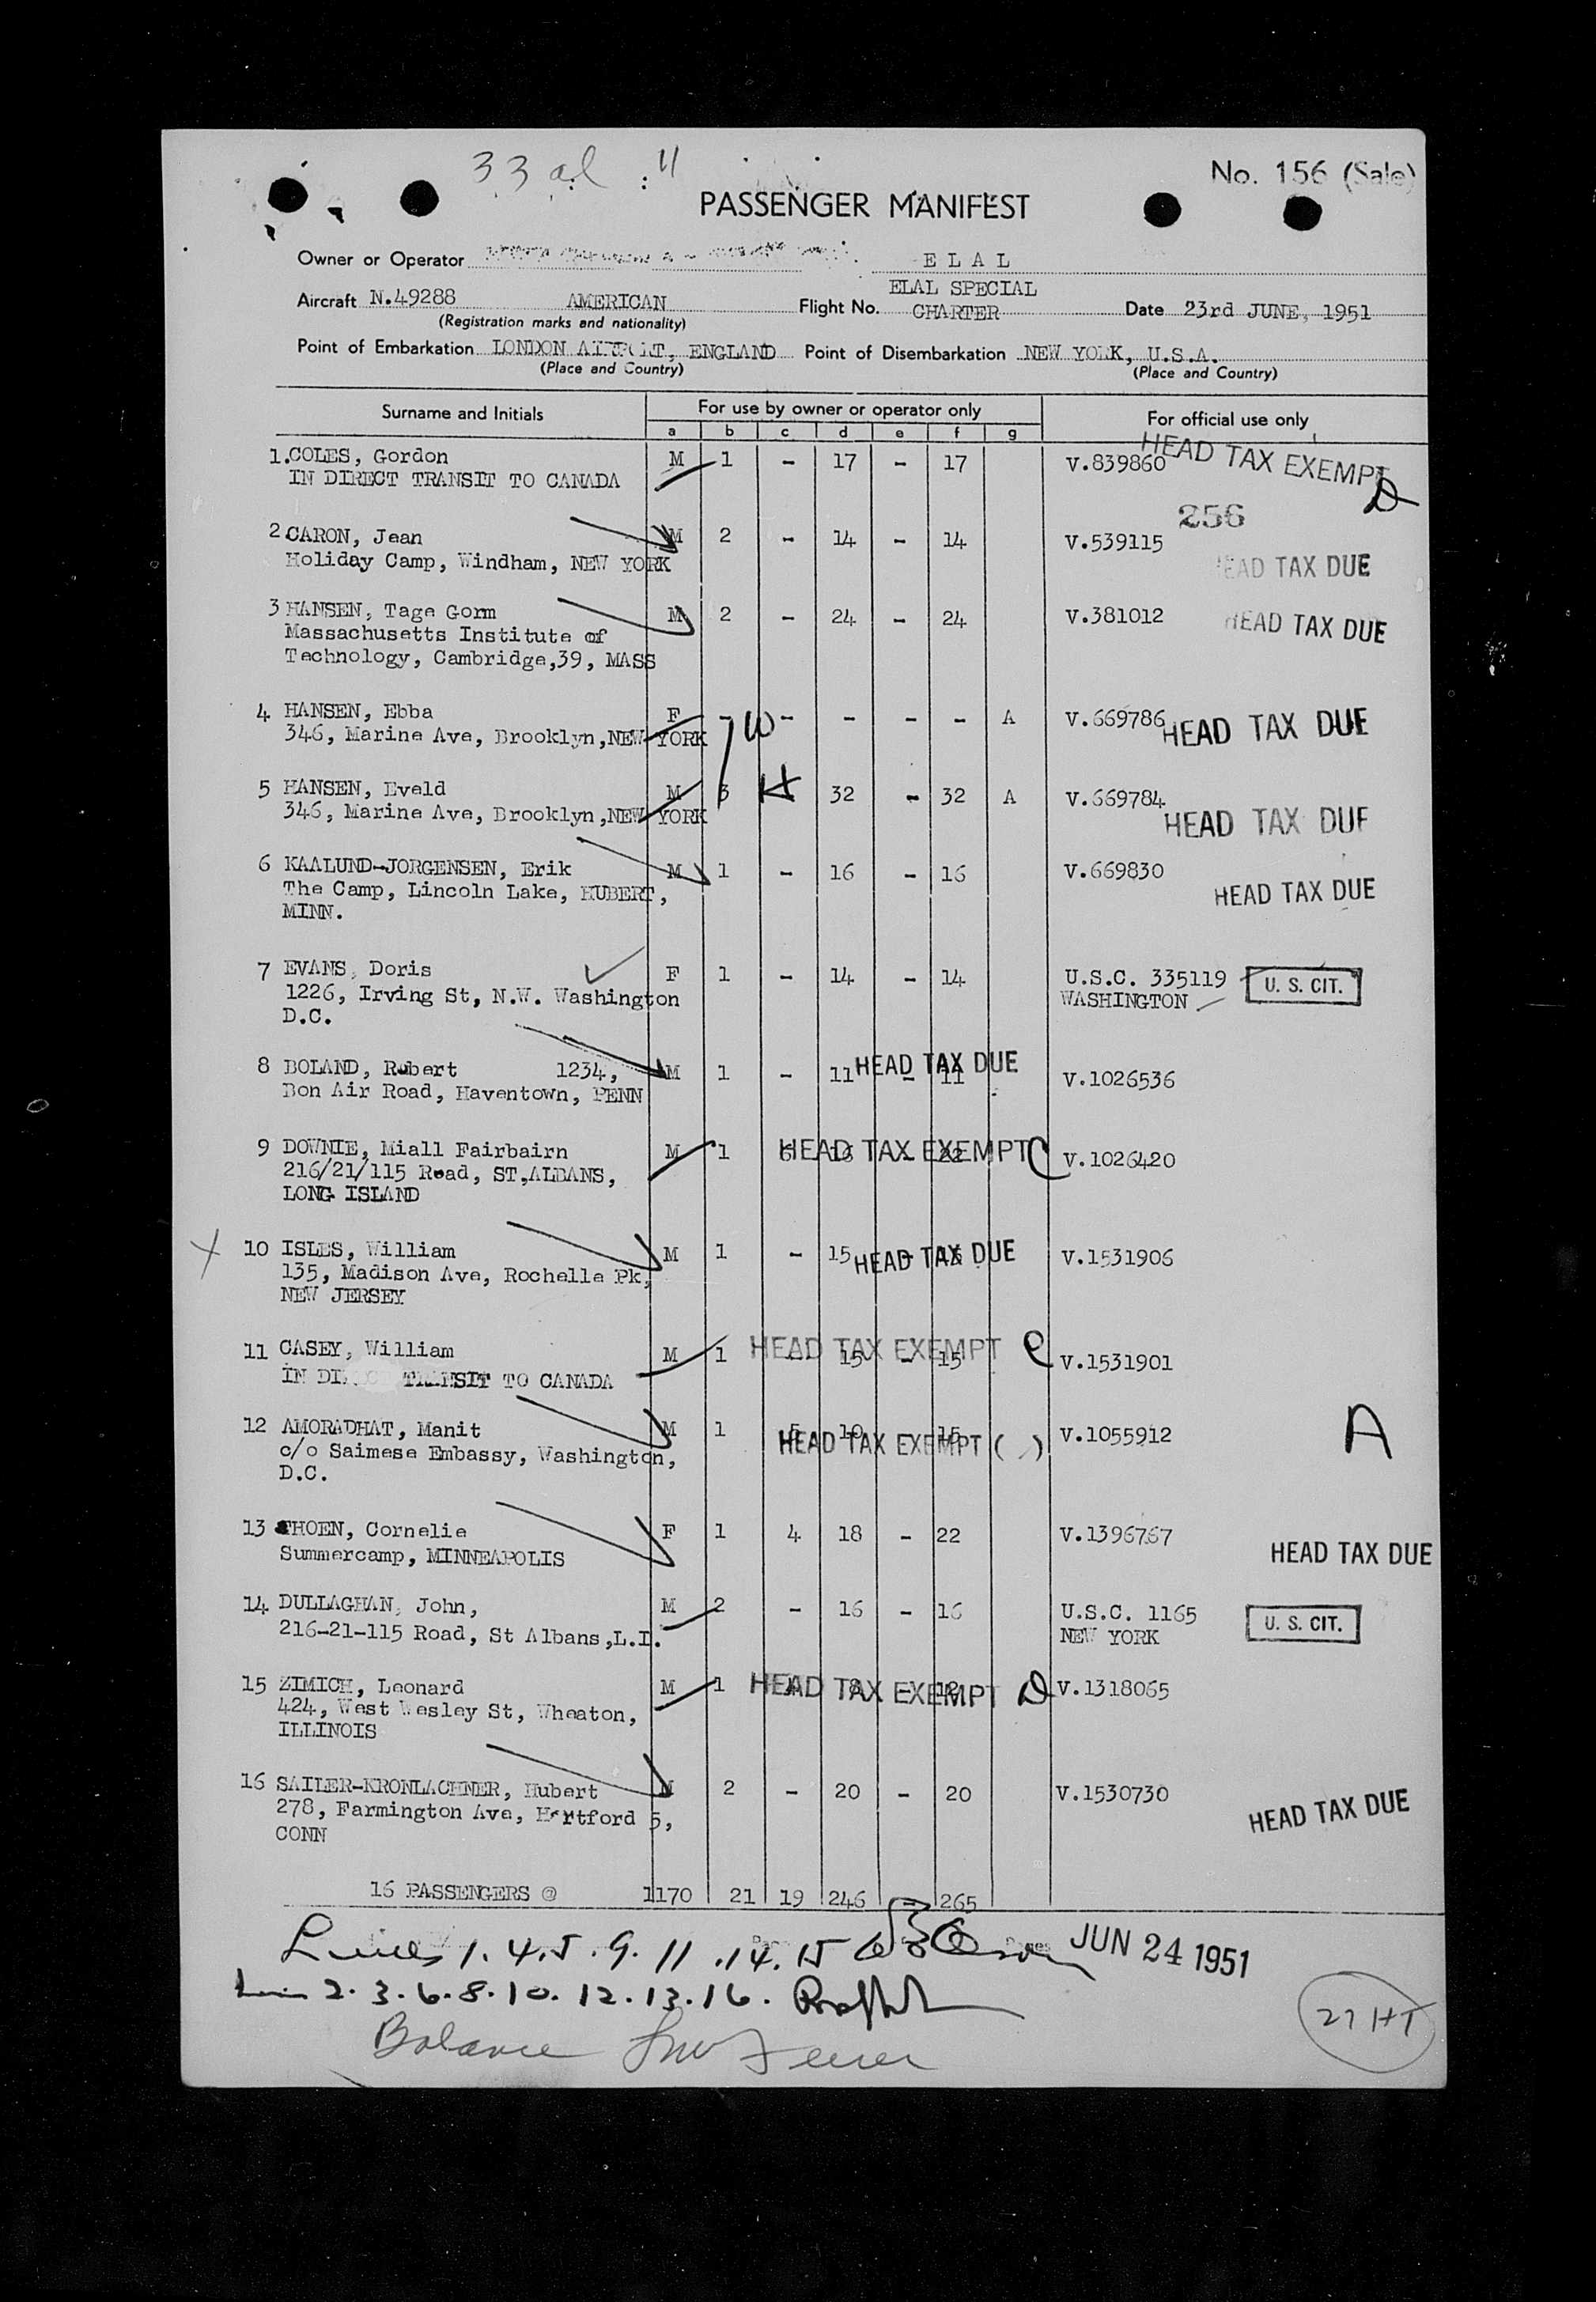 33 al : 11
No. 156 (Sale)
PASSENGER MANIFEST
Owner or Operator E L A L
ELAL SPECIAL
Aircraft N.49288 AMERICAN Flight No. CHARTER Date 23rd JUNE, 1951
(Registration marks and nationality)
Point of Embarkation LONDON AIRPORT, ENGLAND Point of Disembarkation NEW YORK, U.S.A.
(Place and Country) (Place and Country)
Surname and Initials For use by owner or operator only For official use only
a b c d e f g
1. COLES, Gordon M 1 - 17 - 17 V.839860 HEAD TAX EXEMPT D
IN DIRECT TRANSIT TO CANADA
256
2 CARON, Jean M 2 - 14 - 14 V.539115
Holiday Camp, Windham, NEW YORK HEAD TAX DUE
3 HANSEN, Tage Gorm M 2 - 24 - 24 V.381012 HEAD TAX DUE
Massachusetts Institute of
Technology, Cambridge,39, MASS
4 HANSEN, Ebba F - W - - - - A V.669786 HEAD TAX DUE
346, Marine Ave, Brooklyn,NEW YORK
5 HANSEN, Eveld M 3 H 32 - 32 A V.669784
346, Marine Ave, Brooklyn,NEW YORK HEAD TAX DUE
6 KAALUND-JORGENSEN, Erik M 1 - 16 - 16 V.669830
The Camp, Lincoln Lake, HUBERT, HEAD TAX DUE
MINN.
7 EVANS, Doris F 1 - 14 - 14 U.S.C. 335119 U. S. CIT.
1226, Irving St, N.W. Washington WASHINGTON
D.C.
8 BOLAND, Robert 1234, M 1 - 11 - 11 HEAD TAX DUE V.1026536
Bon Air Road, Haventown, PENN
9 DOWNIE, Miall Fairbairn M 1 6 16 - 22 HEAD TAX EXEMPT C V.1026420
216/21/115 Road, ST,ALBANS,
LONG ISLAND
10 ISLES, William M 1 - 15 - 15 HEAD TAX DUE V.1531906
135, Madison Ave, Rochelle Pk,
NEW JERSEY
11 CASEY, William M 1 - 15 - 15 HEAD TAX EXEMPT C V.1531901
IN DI TRANSIT TO CANADA
12 AMORADHAT, Manit M 1 5 10 - 15 HEAD TAX EXEMPT ( ) V.1055912 A
c/o Saimese Embassy, Washington,
D.C.
13 THOEN, Cornelie F 1 4 18 - 22 V.1396767
Summercamp, MINNEAPOLIS HEAD TAX DUE
14 DULLAGHAN, John, M 2 - 16 - 16 U.S.C. 1165 U. S. CIT.
216-21-115 Road, St Albans,L.I. NEW YORK
15 ZIMICH, Leonard M 1 4 8 - 12 HEAD TAX EXEMPT D V.1318065
424, West Wesley St, Wheaton,
ILLINOIS
16 SAILER-KRONLACHNER, Hubert M 2 - 20 - 20 V.1530730
278, Farmington Ave, Hartford 5, HEAD TAX DUE
CONN
16 PASSENGERS @ 1170 21 19 246 - 265
Lines 1. 4. 5. 9. 11. 14. 15 JUN 24 1951
Lines 2. 3. 6. 8. 10. 12. 13. 16.
27 HT
Balance